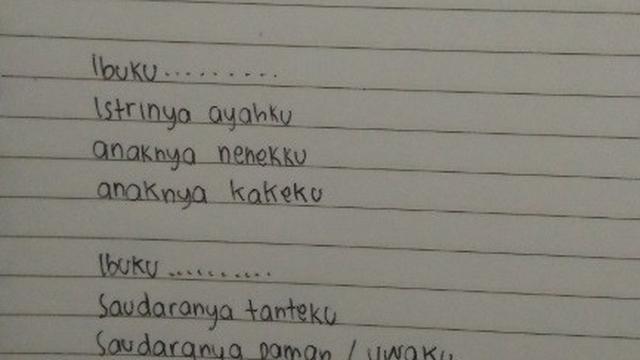 Ibuku .........
Istrinya ayahku
anaknya nenekku
anaknya kakeku
Ibuku ..........
Saudaranya tanteku
Saudaranya paman / uwaku